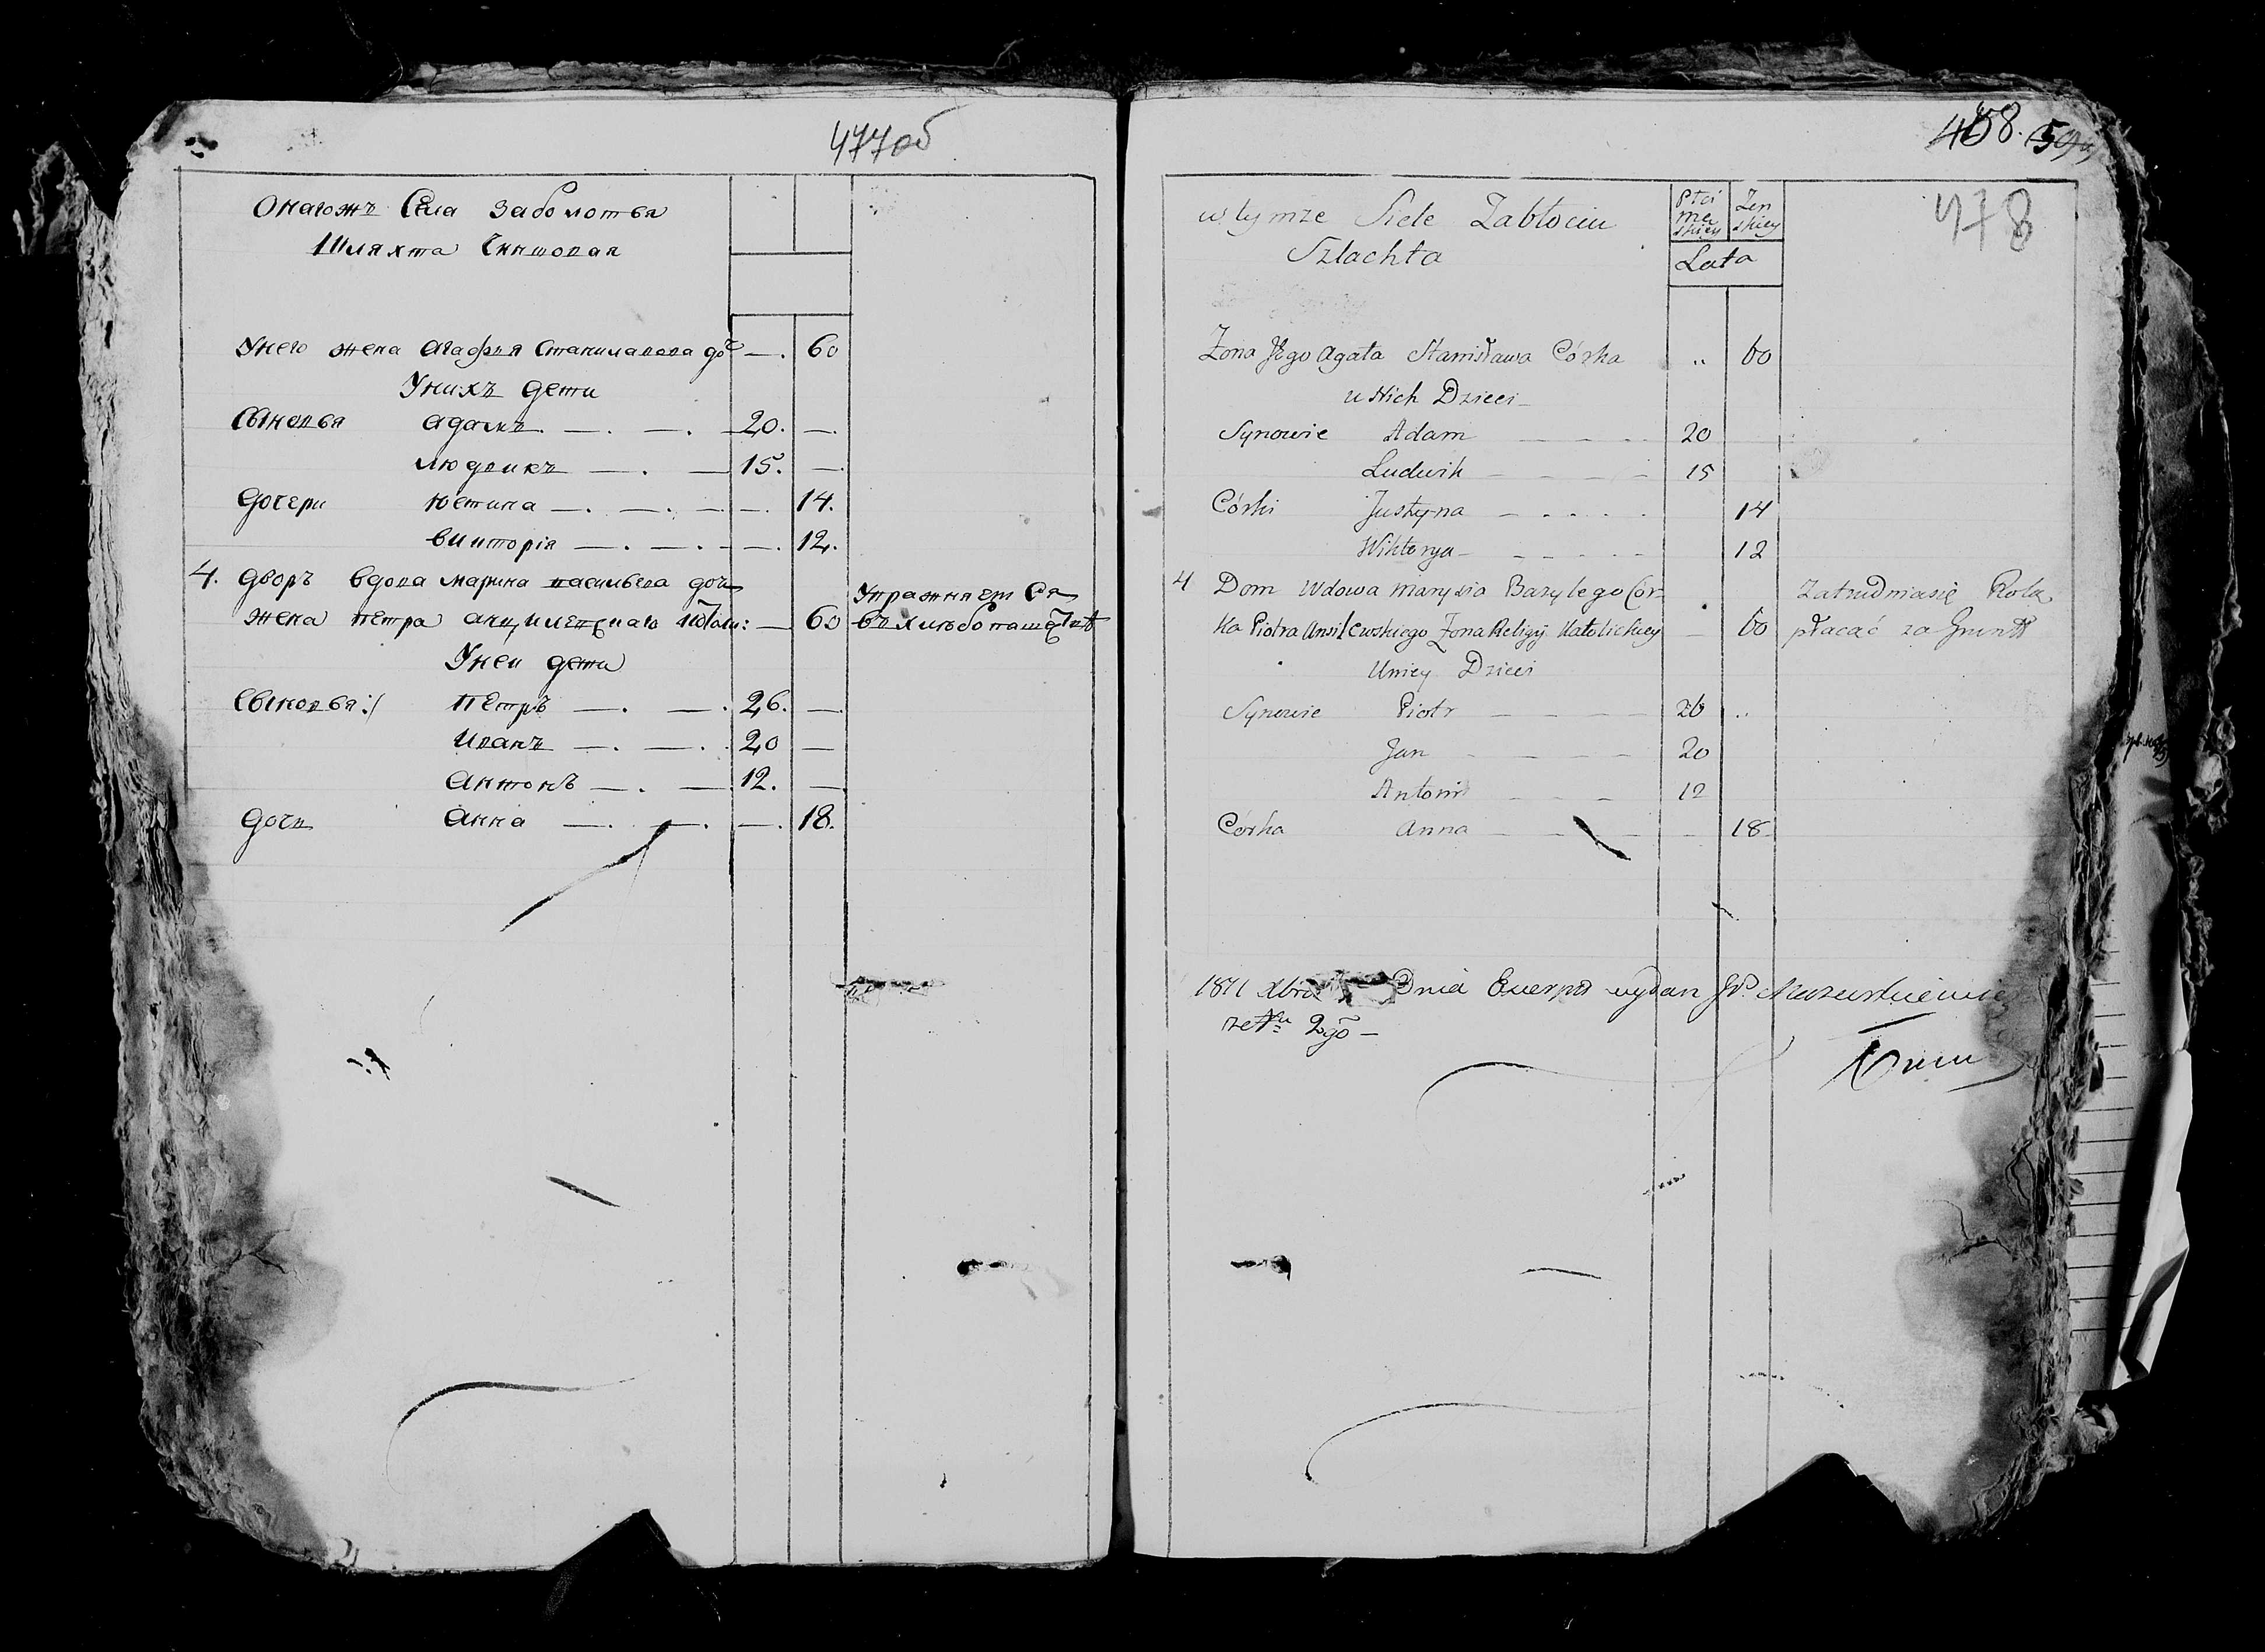 477об
Онагожъ Села Заболотья
Шляхта Чиншовая
Унего жена Агафия Станиславова доч — 60
Унихъ дети
Сыновья Адамъ 20. —
Людвикъ 15. —
Дочери Юстина — 14.
Виктория — 12.
4. Дворъ вдова Марина Васильева дочь
жена Петра — 60
Упражняется
Уней дети
Сыновья:/ Петръ 26. —
Иванъ 20 —
Антонъ 12. —
Дочь Анна — 18.
478
w tymże Siele Zabłociu
Szlachta
Płci męskiey Żenskiey
Lata
Żona Jego Agata Stanisława Córka 60
u Nich Dzieci
Synowie Adam 20
Ludwik 15
Córki Justyna 14
Wiktorya 12
4 Dom Wdowa Marysia Bazylego Cór-
ka Piotra Ansilewskiego Żona Religij Katolickiey — 60
Zatrudniasię Rolą
płacąć za Grunt
Uniey Dzieci
Synowie Piotr 26
Jan 20
Antoni 12
Córka Anna 18
Dnia Exerpt wydan JP.
ze Nru 2go